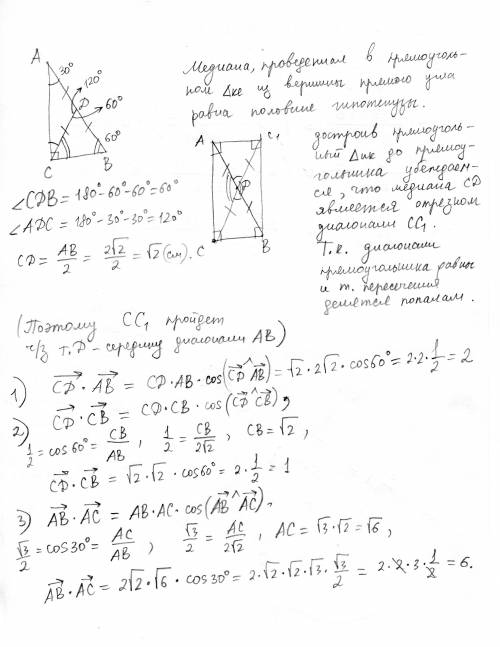 A
30°
120°
D
60°
60°
C
B
Медиана, проведенная в прямоуголь-
ном Δке из вершины прямого угла
равна половине гипотенузы.
A
C₁
D
C
B
достроив прямоуголь-
ный Δник до прямоу-
гольника убеждаем-
ся, что медиана CD
является отрезком
диагонали CC₁.
Т.к. диагонали
прямоугольника равны
и т. пересечения
делятся пополам.
∠CDB = 180°-60°-60°=60°
∠ADC = 180°-30°-30°=120°
CD = AB/2 = 2√2/2 = √2 (см).
(Поэтому CC₁ пройдет
ч/з т. D – середину диагонали AB)
1) CD · AB = CD · AB · cos(CD^AB) = √2 · 2√2 · cos60° = 2·2·1/2 = 2
2) CD · CB = CD · CB · cos(CD^CB),
1/2 = cos60° = CB/AB, 1/2 = CB/2√2, CB = √2,
CD · CB = √2 · √2 · cos60° = 2 · 1/2 = 1
3) AB · AC = AB · AC · cos(AB^AC),
√3/2 = cos30° = AC/AB, √3/2 = AC/2√2, AC = √3 · √2 = √6,
AB · AC = 2√2 · √6 · cos30° = 2 · √2 · √2 · √3 · √3/2 = 2 · 2 · 3 · 1/2 = 6.